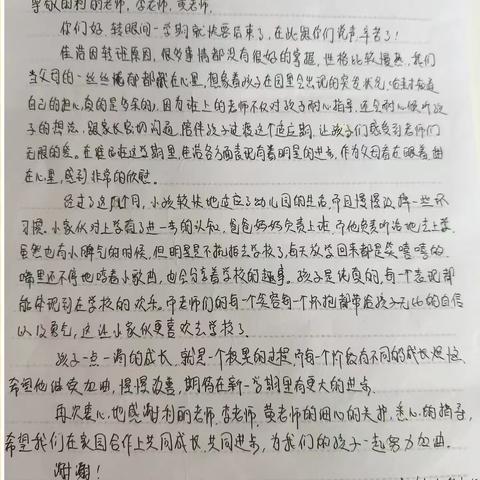 尊敬的利老师,李老师,黄老师,
你们好,转眼间一学期就快要结束了,在此跟你们说声:辛苦了!
佳浩因转班原因,很多事情都没有很好的掌握,性格比较慢热,我们
当父母的一丝丝情都都藏在心里,想象着孩子在园里会出现的突发状况,
自己的担心真的是多余的,因为班上的老师不仅对孩子耐心指导,还会耐心倾听孩
子的想法,跟家长密切沟通,陪伴孩子过接这个适应期,让孩子们感受到老师们
无限的爱。在临近这学期里,佳浩各方面表现有着明显的进步,作为父母看在眼着,甜
在心里,感到非常的欣慰。
经过了这几个月,小孩较快地适应了幼儿园的生活,而且慢慢改掉一些坏
习惯。小家伙对上学有了进一步的认知,爸爸妈妈负责上班,而他负责听话地去上学。
虽然也有小脾气的时候,但明显是不抗拒去学校了,每天放学回来都是笑嘻嘻的,
嘴里还不停地哼着小歌曲,也会分享着学校的趣事。孩子是纯真的,每一个表现都
能体现到在学校的欢乐。而老师们的每一个笑容每一个怀抱都带给孩子无比的自信
以及勇气,这让小家伙更喜欢去学校了。
孩子一点一滴的成长,就是一个积累的过程,而每一个阶段有不同的成长烦恼,
希望他继续加油,慢慢改善,期待在新一学期里有更大的进步。
再次衷心地感谢利老师,李老师,黄老师的细心的关护,悉心的指导,
希望我们在家园合作上共同成长,共同进步,为我们的孩子一起努力加油。
谢谢!